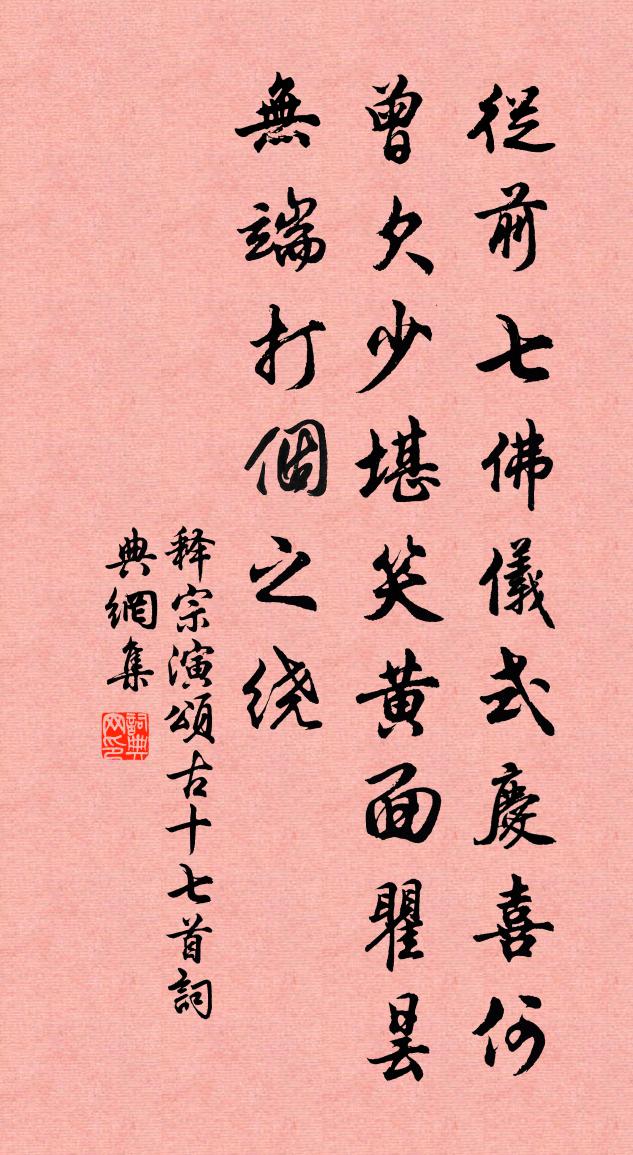 從前七佛儀式慶喜何
曾欠少堪笑黃面瞿曇
無端打個之绕
释宗演頌古十七首詞
典網集
詞典网印